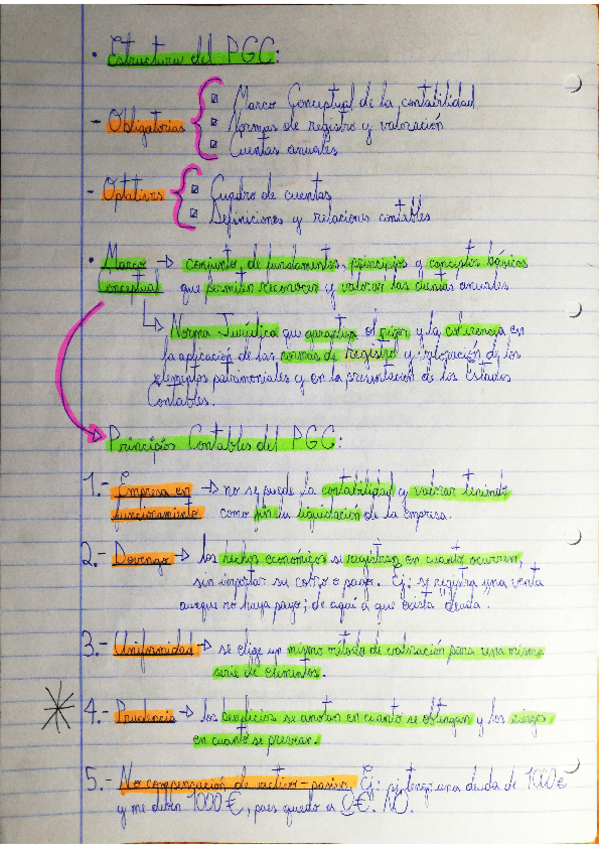 • Estructura del PGC:
- Obligatorias
Marco Conceptual de la contabilidad
Normas de registro y valoración
Cuentas anuales
- Optativas
Cuadro de cuentas
Definiciones y relaciones contables
• Marco → conjunto de fundamentos, principios y conceptos básicos
Conceptual que permiten reconocer y valorar las cuentas anuales
Norma Jurídica que garantiza el rigor y la coherencia en
la aplicación de las normas de registro y valoración de los
elementos patrimoniales y en la presentación de los Estados
Contables.
Principios Contables del PGC:
1.- Empresa en → no se puede la contabilidad y valorar teniendo
funcionamiento como fin la liquidación de la empresa.
2.- Devengo → los hechos económicos se registran en cuanto ocurren,
sin importar su cobro o pago. Ej: se registra una venta
aunque no haya pago; de aquí a que exista "deuda".
3.- Uniformidad → se elige un mismo método de valoración para una misma
serie de elementos.
4.- Prudencia → los beneficios se anotan en cuanto se obtengan y los riesgos,
en cuanto se prevean.
5.- No compensación de activo-pasivo. Ej: si tengo una deuda de 1000€
y me deben 1000€, pues quedo a 0€. NO.